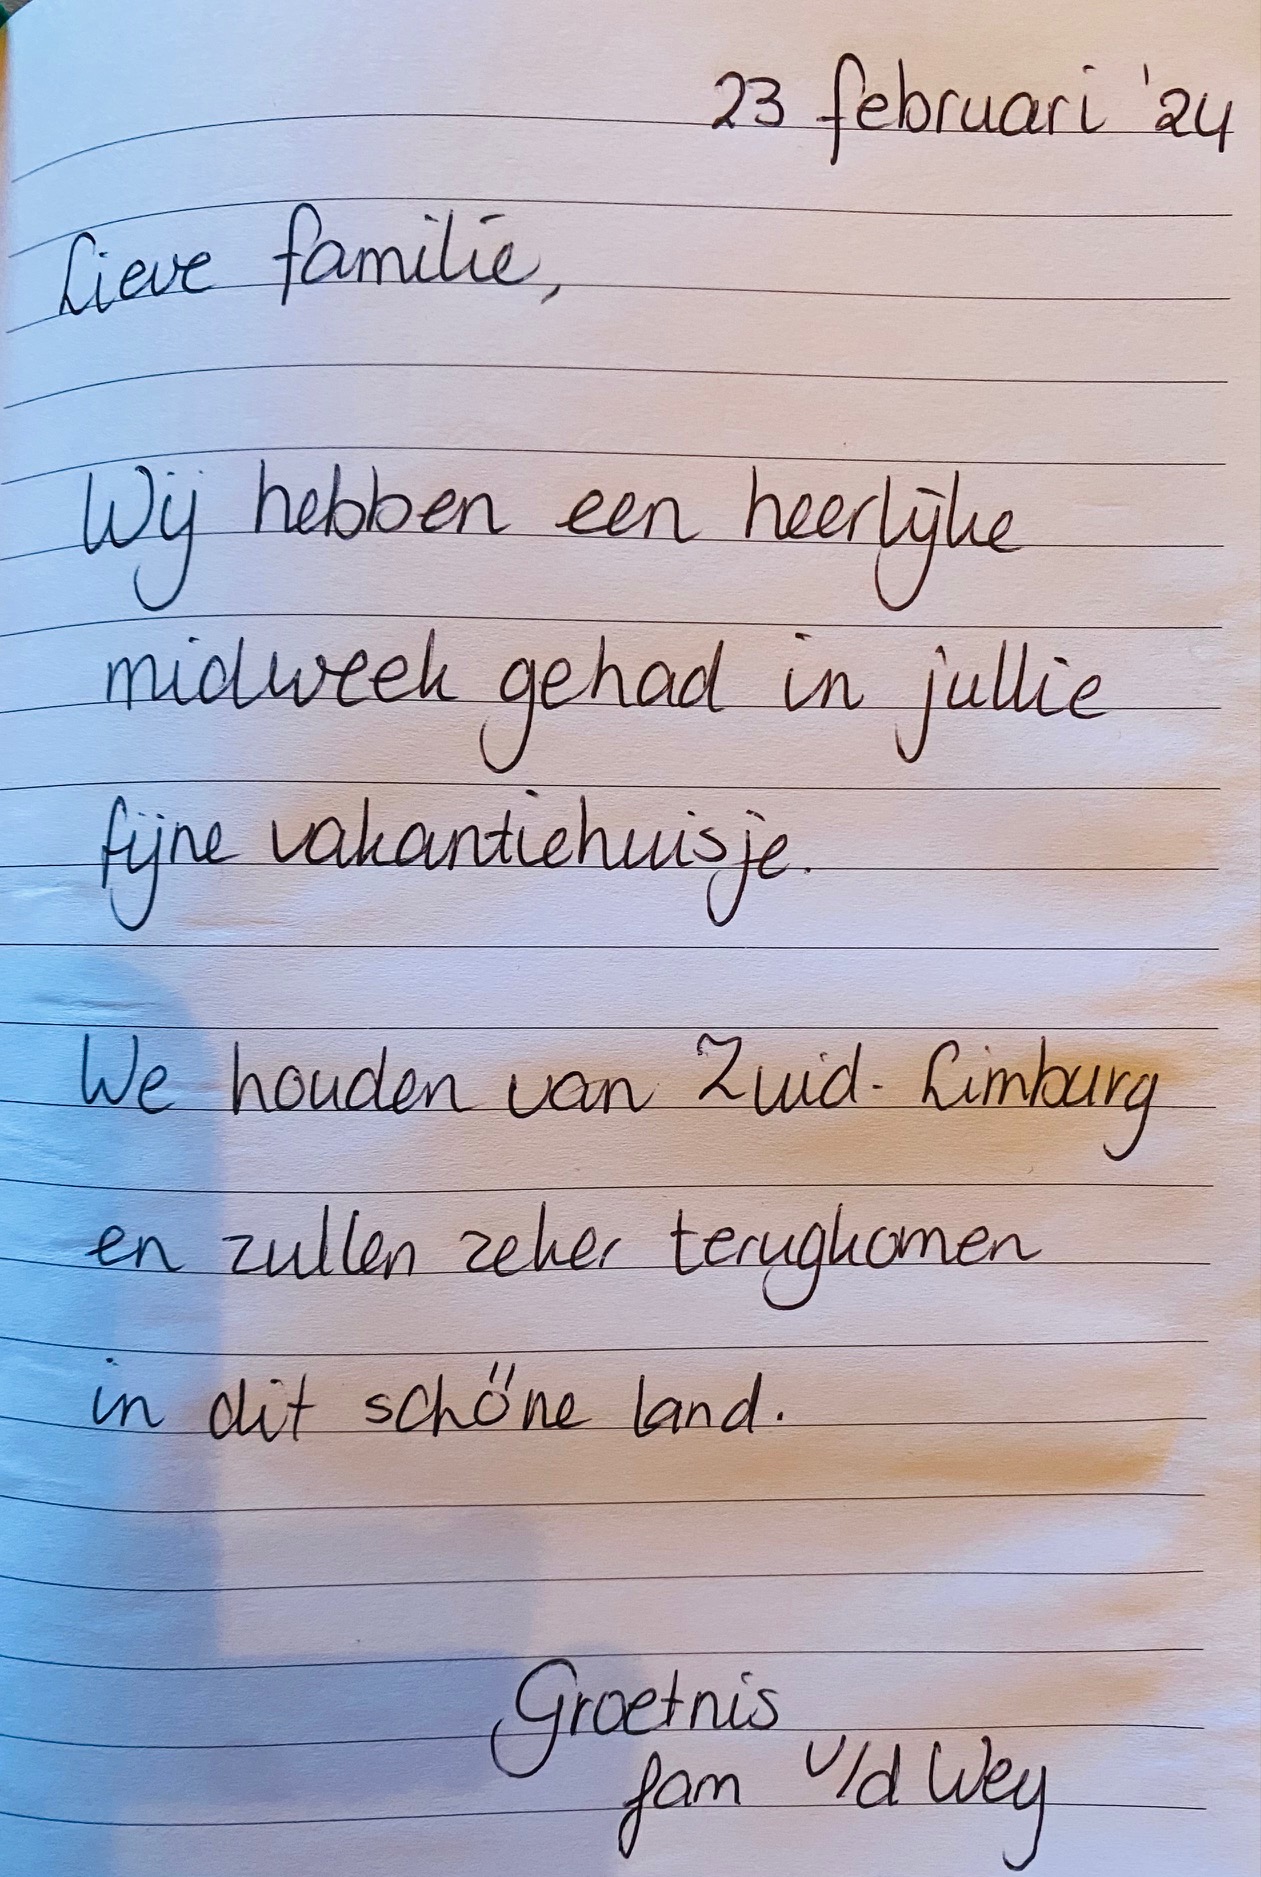 23 februari '24
Lieve familie,
Wij hebben een heerlijke
midweek gehad in jullie
fijne vakantiehuisje.
We houden van Zuid-Limburg
en zullen zeker terugkomen
in dit schöne land.
Groetnis
fam v/d Wey